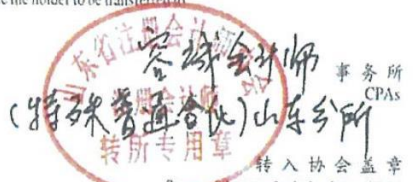 the holder to be transferred to
山东省注册会计师
容诚会计师 事务所
CPAs
(特殊普通合伙)山东分所
转所专用章
转入协会盖章